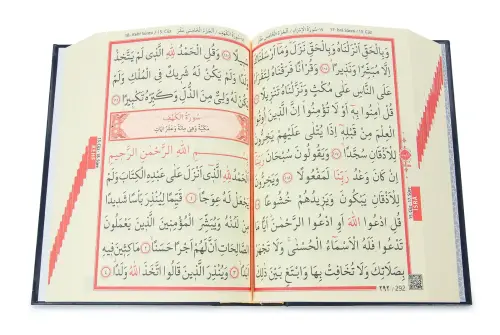 وَبِالْحَقِّ اَنْزَلْنَاهُ وَبِالْحَقِّ نَزَلَ وَمَا
اِلَّا مُبَشِّرًا وَنَذِيرًا وَقُرْاٰنًا فَرَقْنَاهُ
عَلَى النَّاسِ عَلٰى مُكْثٍ وَنَزَّلْنَاهُ تَنْزِيلًا
قُلْ اٰمِنُوا بِهِ اَوْ لَا تُؤْمِنُوا اِنَّ الَّذِينَ
الْعِلْمَ مِنْ قَبْلِهِ اِذَا يُتْلٰى عَلَيْهِمْ يَخِرُّونَ
لِلْاَذْقَانِ سُجَّدًا وَيَقُولُونَ سُبْحَانَ
اِنْ كَانَ وَعْدُ رَبِّنَا لَمَفْعُولًا وَيَخِرُّونَ
لِلْاَذْقَانِ يَبْكُونَ وَيَزِيدُهُمْ خُشُوعًا
قُلِ ادْعُوا اللّٰهَ اَوِ ادْعُوا الرَّحْمٰنَ اَيًّا
تَدْعُوا فَلَهُ الْاَسْمَاءُ الْحُسْنٰى وَلَا تَجْهَرْ
بِصَلَاتِكَ وَلَا تُخَافِتْ بِهَا وَابْتَغِ بَيْنَ ذٰلِكَ
٢٩٢ / 292
ISRA
وَقُلِ الْحَمْدُ لِلّٰهِ الَّذِي لَمْ يَتَّخِذْ
وَلَمْ يَكُنْ لَهُ شَرِيكٌ فِي الْمُلْكِ وَلَمْ
يَكُنْ لَهُ وَلِيٌّ مِنَ الذُّلِّ وَكَبِّرْهُ تَكْبِيرًا
سُورَةُ الْكَهْفِ
مَكِّيَّةٌ وَهِيَ مِائَةٌ وَعَشْرُ اٰيَاتٍ
اللّٰهِ الرَّحْمٰنِ الرَّحِيمِ
اَلْحَمْدُ لِلّٰهِ الَّذِي اَنْزَلَ عَلٰى عَبْدِهِ الْكِتَابَ وَلَمْ
يَجْعَلْ لَهُ عِوَجًا قَيِّمًا لِيُنْذِرَ بَأْسًا شَدِيدًا
لَدُنْهُ وَيُبَشِّرَ الْمُؤْمِنِينَ الَّذِينَ يَعْمَلُونَ
الصَّالِحَاتِ اَنَّ لَهُمْ اَجْرًا حَسَنًا مَاكِثِينَ فِيهِ
وَيُنْذِرَ الَّذِينَ قَالُوا اتَّخَذَ اللّٰهُ وَلَدًا